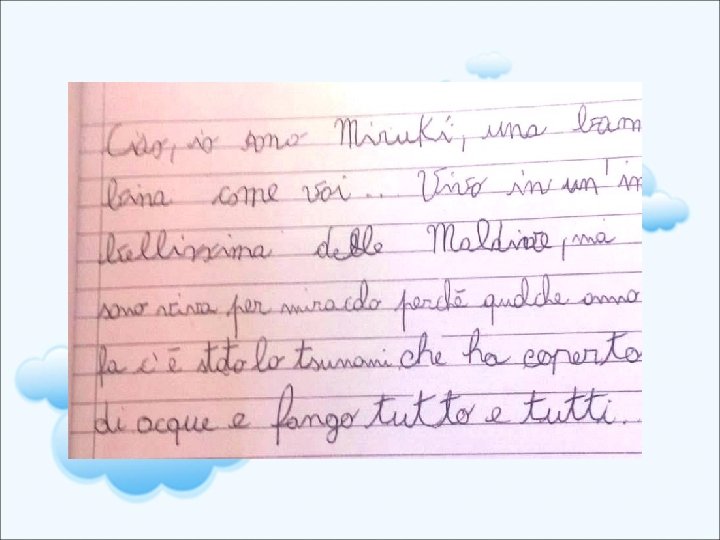 Ciao, io sono Miruki, una bam
bina come voi... Vivo in un'in
bellissima delle Maldive, ma
sono viva per miracolo perchè qualche anno
fa c'è stato lo tsunami che ha coperto
di acque e fango tutto e tutti...